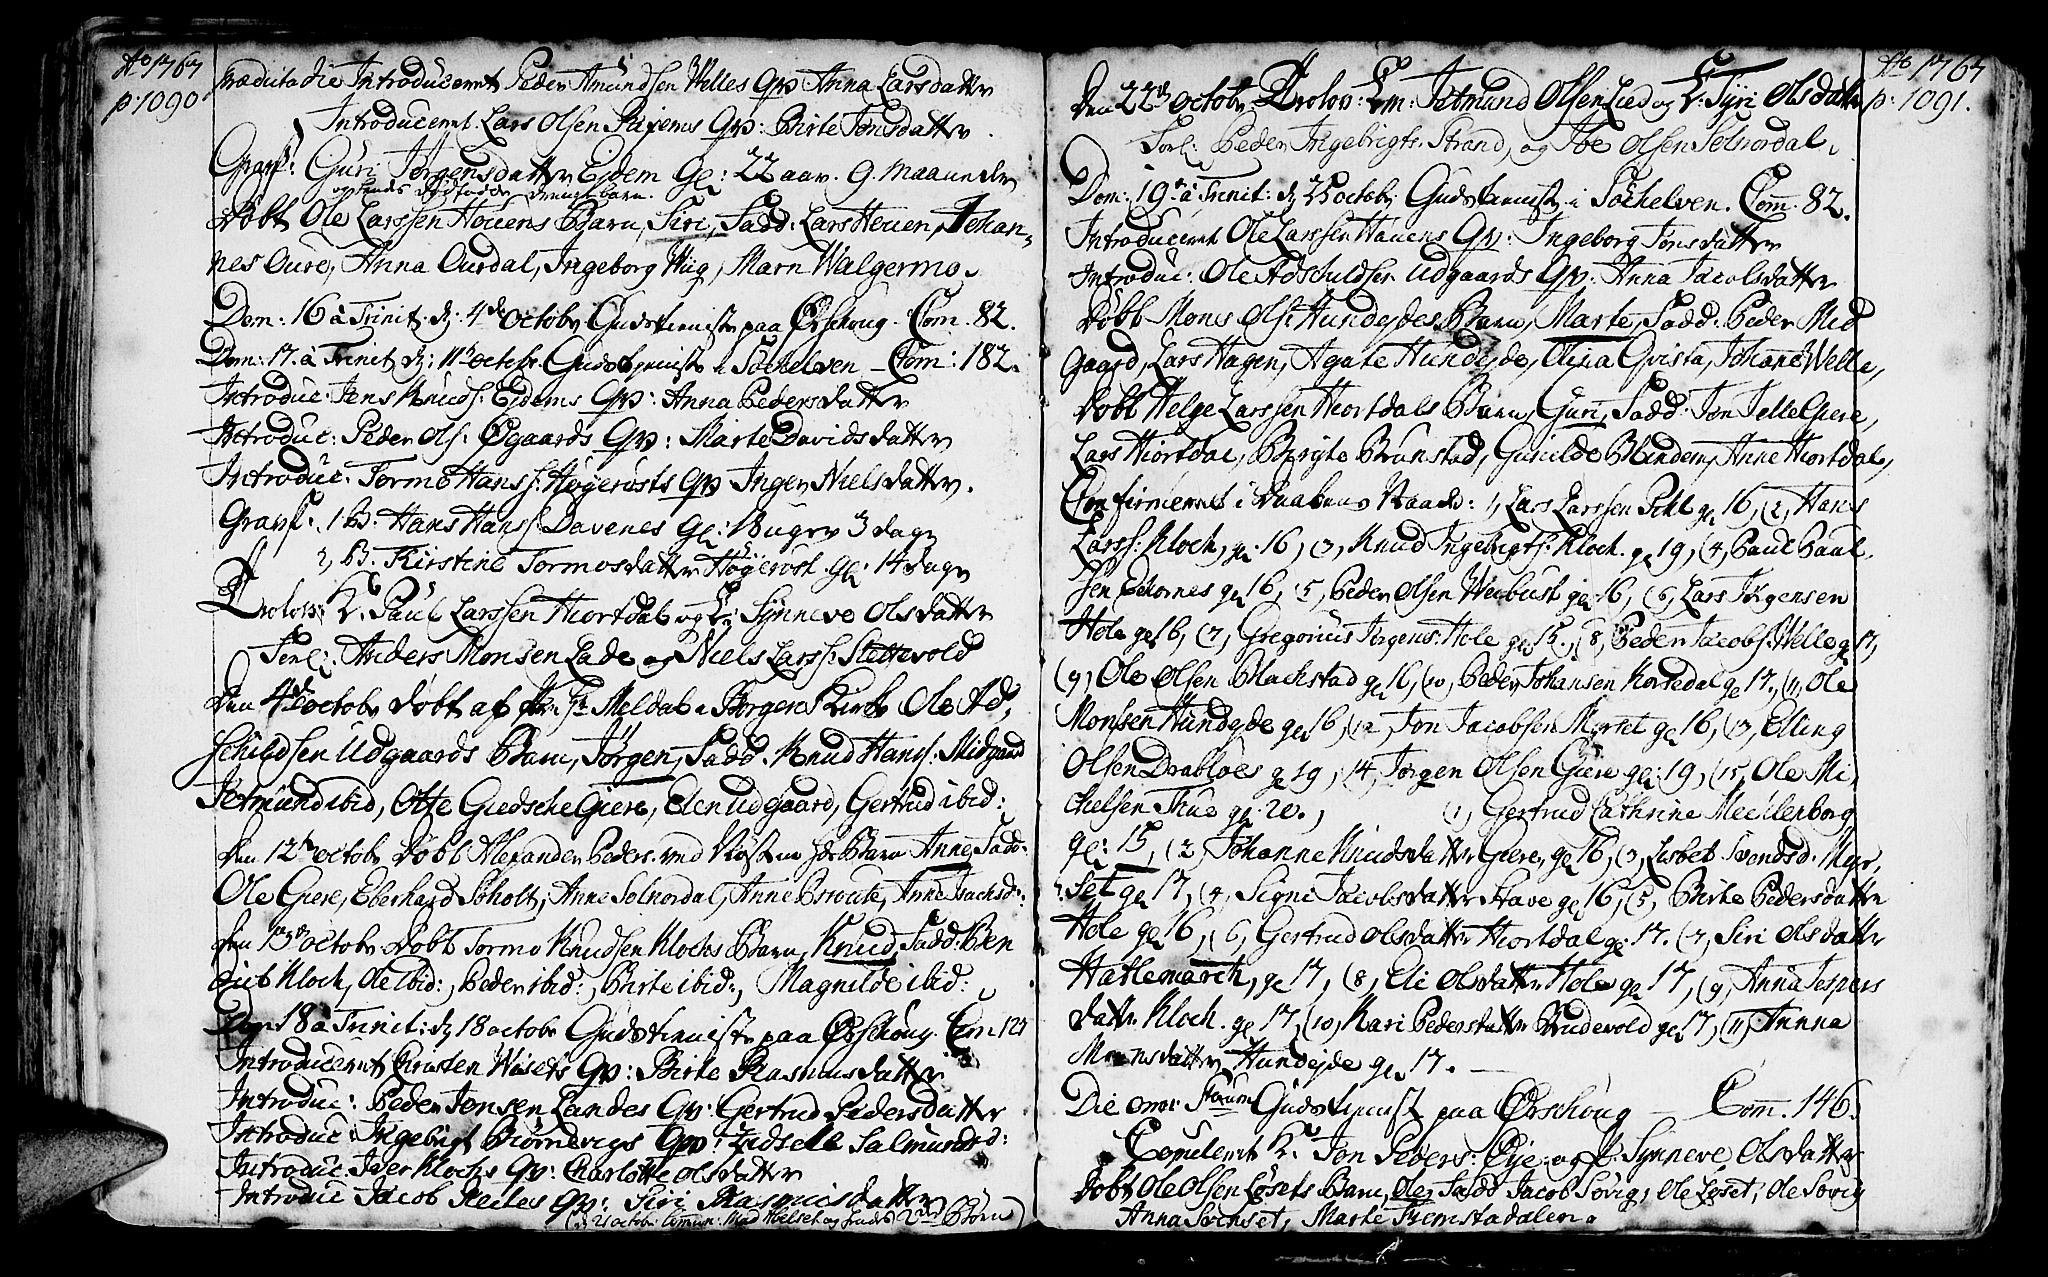 Ao 1767
p. 1090
prædicta die Introduceret Peder Amundsen Welles Qv: Anna Larsdatter
Introduceret Lars Olsen Ryjems Qv: Birte Jonsdatter
Gravf: Guri Jørgensdatter Eidem gl: 22 aar. 9. maaneder
Døbt Ole Larssen Houens Barn, Siri, Fadd: Lars Houen, Johan-
nes Oure, Anna Ourdal, Ingeborg Wiig, Marn Walgermo.
Dom: 16 à Trinit: d: 4de Octobr Gudstieniste paa Ørschoug. Com. 82.
Dom: 17. à Trinit d: 11te octobr. Gudstieniste i Søchelven - Com: 182.
Introduc: Jens Knuds: Ejdems Qv: Anna Pedersdatter
Introduc: Peder Ols: Øgaards Qv: Marte Davidsdatter
Introduc: Tormo Hanss: Høgerosts Qv Inger Nielsdatter.
Gravf: 1, B: Hans Hans: Davenes gl: 18 uger 3 dage
2, B. Kirstine Tormosdatter Høgerost. gl: 14 dage
Trolov: K: Paul Larssen Hiortdal og P: Synneve Olsdatter
Forl: Anders Monsen Lade og Niels Larss: Stettevold
Den 4de octobr døbt af Hr Meldal i Borgens Kirke Ole Ad-
schuldsen Udgaards Barn, Jørgen, Fadd. Knud Hanss: Midgaard
Jetmund ibid, Otte Giedsche Giere, Elen Udgaard, Gertrud ibid:
Den 12te octobr døbt Alexander Peders. ved Kosten hds Barn Anne, Fadd:
Ole Giere, Eberhard Søholt, Anne Solnordal, Anne Broute, Anne Isachsd:
Den 13de octobr døbt Tormo Knudsen Klochs Barn, Knud, Fadd: Ben
dict Kloch, Ole Ibid:, Peder ibid:, Birte ibid:, Magnilde ibid:
Dom 18 à Trinit: d: 18 octobr Gudstieniste paa Ørschoug. Com. 127
Introduceret Christen Wisets Qv: Birte Rasmusdatter
Introduc: Peder Jensen Landes Qv: Gertrud Pedersdatter
Introduc: Ingebrigt Biørnevigs Qv: Zidsele Salmundsd:
Introduc Iver Klochs Qv: Charlotte Olsdatter
Introduc Jacob Qv: Siri Rasmusdatter
(d: 21 octobr Commun: Mad og hendes Børn)
Ao 1767
p: 1091.
Den 22de octobr Trolov: E.m: Jetmund Olsen Lied og P: Tyri Olsdatter
Forl: Peder Ingebrigts. Strand, og Joe Olsen Solnordal.
Dom: 19de à Trinit: d: 25 octobr Gudstieniste i Søchelven. Com: 82.
Introduceret Ole Larssen Houens Qv: Ingeborg Jonsdatter
Introduc: Ole Adschuldsen Udgaards Qv: Anna Jacobsdatter
Døbt Mons Ols: Hundejdes Barn, Marte, Fadd: Peder Mid
gaard, Lars Hagen, Agate Hundejde, Olina Qvista, Johane Welle,
Døbt Helge Larssen Hiortdals Barn, Guri, Fadd: Jon Jelle Giere,
Lars Hiortdal, Brijte Brunstad, Gunilde Blindem, Anne Hiortdal,
Confirmeret i Daabens Naade: 1, Lars Larssen gl 16, (2, Hans
Larss: Kloch, gl. 16, (3, Knud Ingebrigts: Kloch. gl 19, (4, Paul Paul-
sen Ekornes gl 16, (5, Peder Olsen Weibust gl 16, (6, Lars Jørgensen
Hole gl 16, (7, Gregorius Jørgens: Hole gl 15., (8, Peder Jacobs: Welle gl 17,
(9, Ole Olsen Blachstad gl 16, (10, Peder Johansen Korsedal gl 17., (11, Ole
Monsen Hundejde gl 16, (12, Jon Jacobsen Myrset gl 16, (13, Elling
Olsen Drabløes gl 19, (14, Jørgen Olsen Giere gl: 19, (15, Ole Mi-
chelsen Thue gl: 20., (1, Gertrud Cathrine Mecklenborg
gl: 15, (2, Johanne Knudsdatter Giere, gl 16, (3, Lisbet Svendsd: Myr,
set gl 17, (4, Signi Jacobsdatter Stave gl 16, (5, Birte Pedersdatter
Hole gl 16, (6, Gertrud Olsdatter Hiortdal gl. 17. (7, Siri Olsdatter
Hatlemarch, gl 17, (8, Eli Olsdatter Hole gl 17, (9, Anna Jespers
datter Kloch. gl 17, (10, Kari Pedersdatter Brudevold gl 17, (11, Anna
Monsdatter Hundejde gl 17.
Die omn: Sanct: Gudstieniste paa Ørschoug - Com. 146.
Copuleret K: Jon Peders: Øye og P. Synneve Olsdatter
Døbt Ole Olsen Løsets Barn, Ole, Fadd Jacob Søvig, Ole Løset, Ole Søvig
Anna Svenset, Marte Tremstadalen.